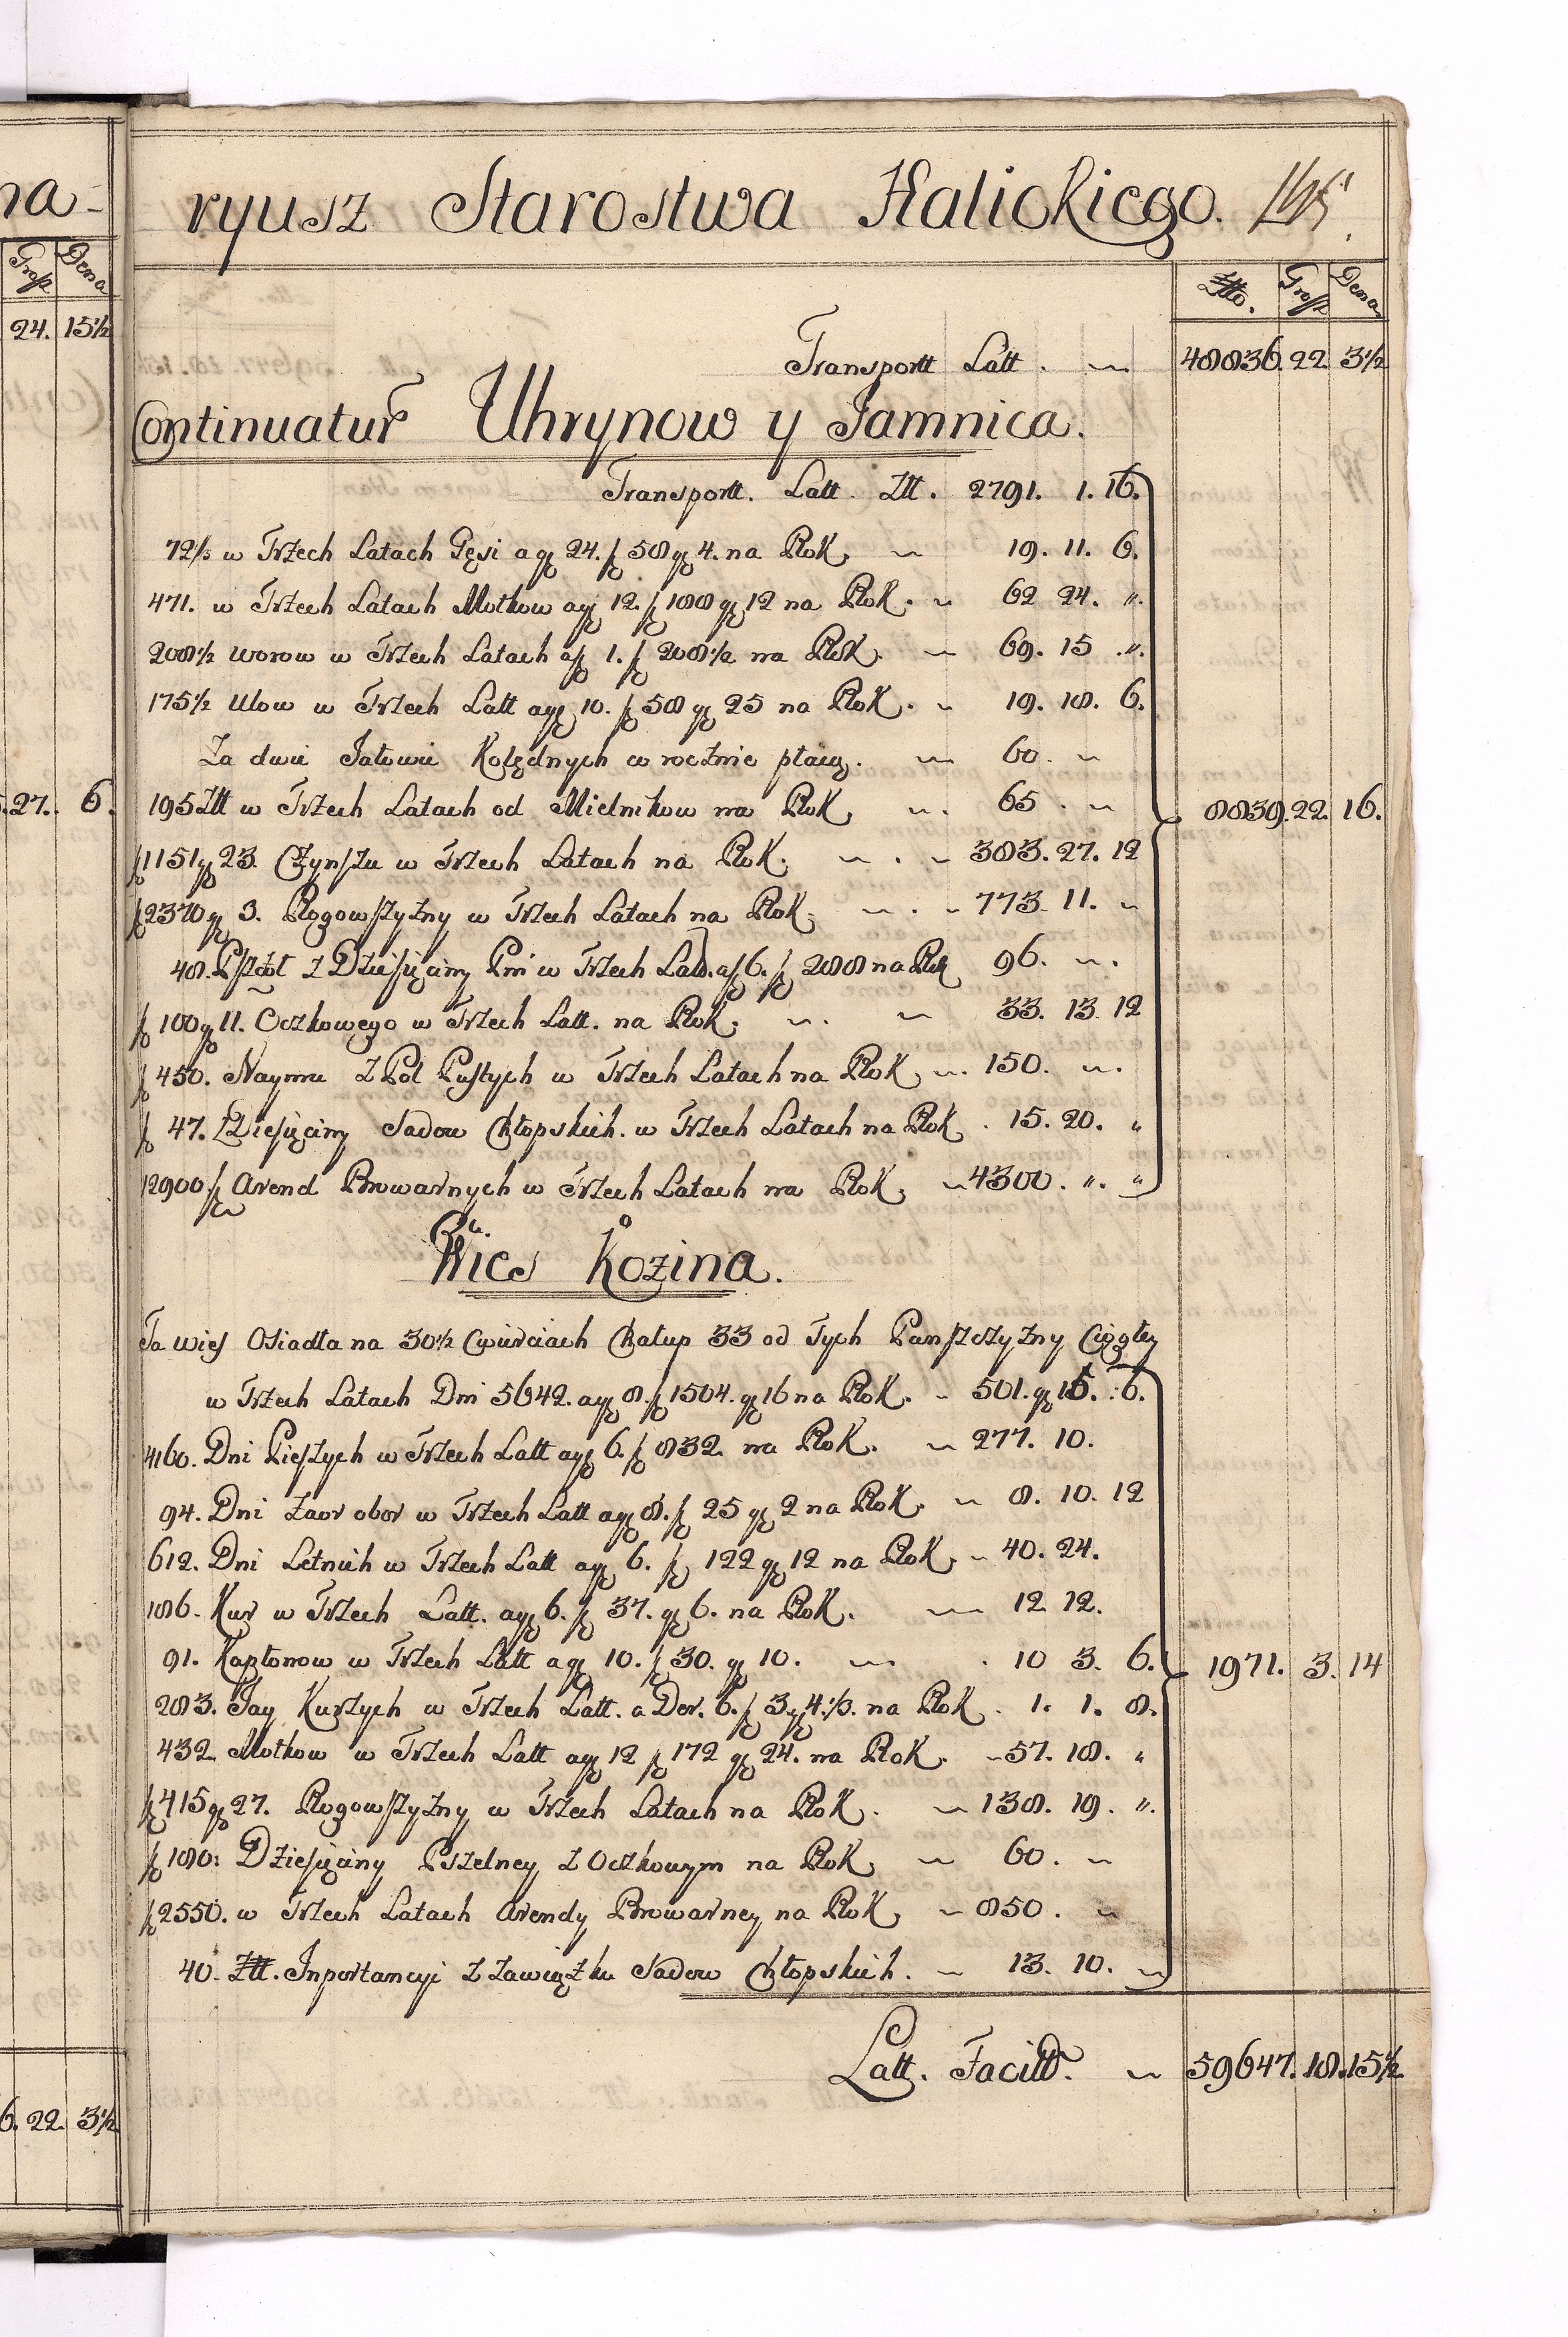 na-
Grosz Dena
24. 15½
27. 6.
6. 22. 3½
ryusz Starostwa Halickiego.
Złło. Grosz Dena
Transportt Latt. 48836. 22. 3½
Continuatur Uhrynow y Jamnica.
Transportt. Latt. Złł. 2791. 1. 16.
72⅔ w Trzech Latach Gęsi a gr 24. f 58 gr 4. na Rok 19. 11. 6.
471. w Trzech Latach Motkow a gr 12. f 188 gr 12 na Rok. 62 24. "
208½ worow w Trzech Latach a f 1. f 208½ na Rok. 69. 15 "
175½ Ulow w Trzech Latt a gr 10. f 58 gr 25 na Rok. 19. 18. 6.
Za dwie Jałowic Kolędnych co rocznie płacą. 60.
195 Złł w Trzech Latach od Mielnikow na Rok 65. 8839. 22. 16.
f 1151 gr 23. Czynszu w Trzech Latach na Rok. 383. 27. 12
f 2320 gr 3. Rogowszyzny w Trzech Latach na Rok. 773. 11.
48. Pszczoł z Dziesięciny Pni w Trzech Lat. a f 6. f 288 na Rok 96.
f 100 gr 11. Oczkowego w Trzech Latt. na Rok. 33. 13. 12
f 450. Naymu z Pol Pustych w Trzech Latach na Rok 150.
f 47. Dziesięciny Sadow Chłopskich. w Trzech Latach na Rok. 15. 20. "
12900 f Arend Browarnych w Trzech Latach na Rok 4300. " "
Wies Kozina.
Ta wies Osiadła na 30½ Cwierciach Chałup 33 od Tych Panszczyzny Ciągłey
w Trzech Latach Dni 5642. a gr 8. f 1504. gr 16 na Rok. 501. gr 15. 6.
4160. Dni Pieszych w Trzech Latt a gr 6. f 832. na Rok. 277. 10.
94. Dni Zaor obor w Trzech Latt a gr 8. f 25 gr 2 na Rok. 8. 10. 12
612. Dni Letnich w Trzech Latt a gr 6. f 122 gr 12 na Rok 40. 24.
186. Kur w Trzech Latt. a gr 6. f 37. gr 6. na Rok. 12. 12.
91. Kapłonow w Trzech Latt a gr 10. f 30. gr 10. 10 3. 6. 1971. 3. 14
283. Jay Kurzych w Trzech Latt. a Den. 6. f 3 gr 4⅓. na Rok. 1. 1. 8.
432. Motkow w Trzech Latt a gr 12 f 172 gr 24. na Rok. 57. 18. "
f 415 gr 27. Rogowszyzny w Trzech Latach na Rok. 138. 19. "
f 180: Dziesięciny Pszelney z Oczkowym na Rok 60.
f 2550. w Trzech Latach Arendy Browarney na Rok 850.
40. Złł. Inportancyi z zawiązku Sadow Chłopskich. 13. 10.
Latt. Facitt. 59647. 18. 15½